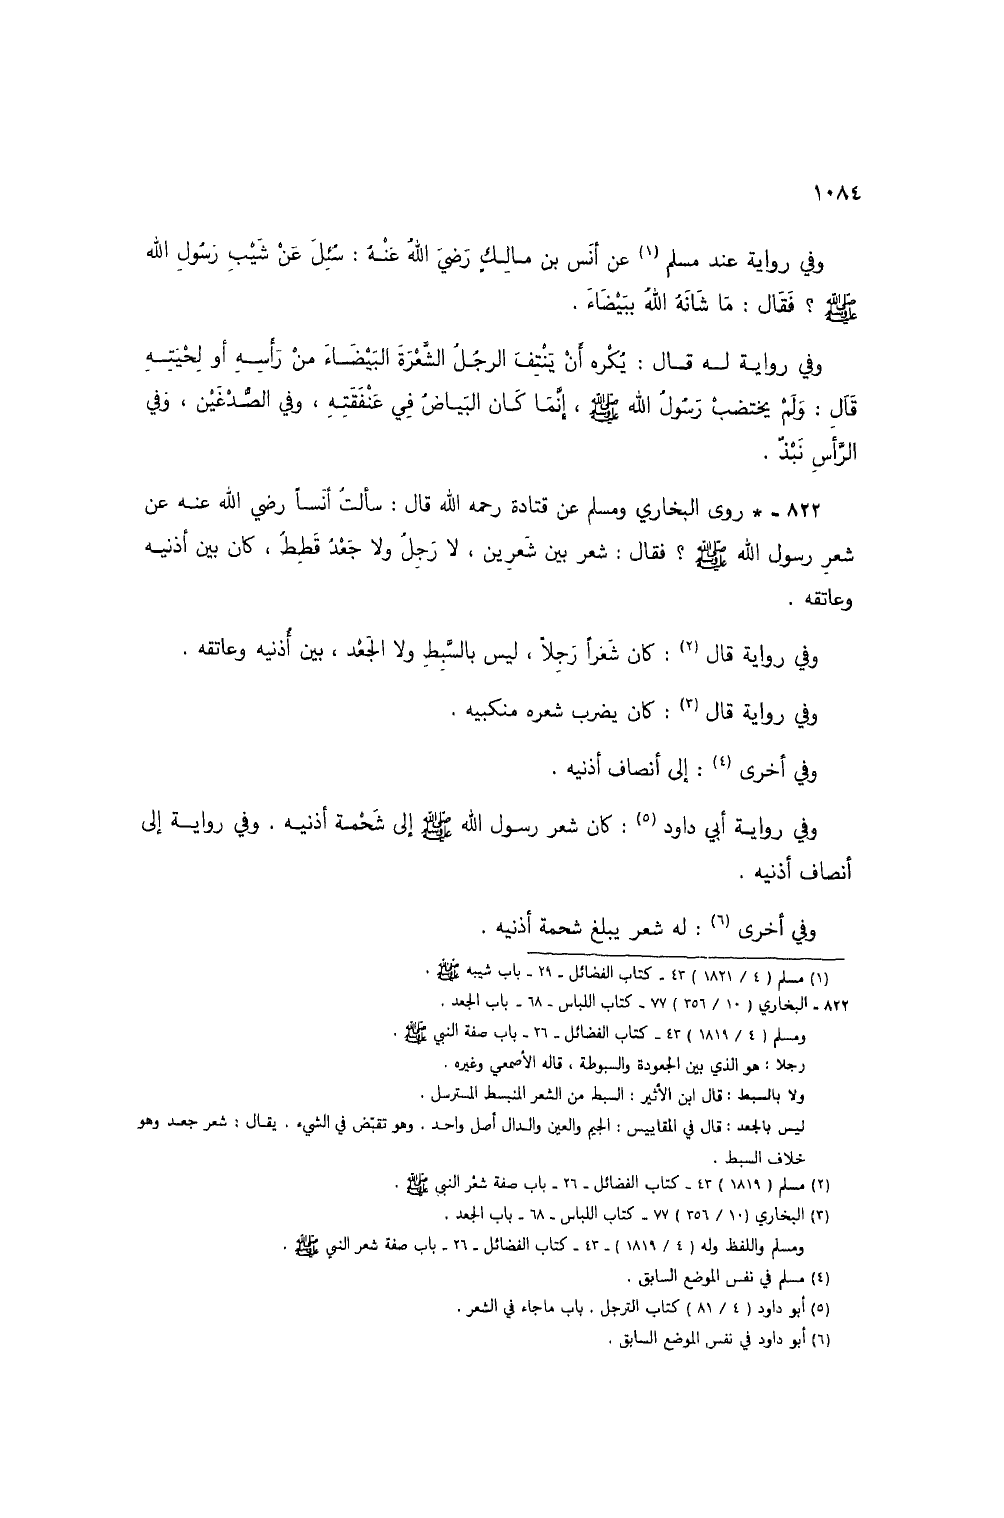 ١٠٨٤
وفي رواية عند مسلم (١) عن أنَس بن مـالِـكٍ رَضيَ اللهُ عَنْـهُ : سُئِلَ عَنْ شَيْبِ رَسُولِ الله
ﷺ ؟ فَقَال : مَا شَانَهُ اللهُ بِبَيْضَاءَ .
وفي روايـة لــه قــال : يُكْره أَنْ يَنْتِفَ الرجُـلُ الشَّعْرَةَ البَيْضَـاءَ منْ رَأسِـهِ أو لِحْيَتِـهِ
قَال : وَلَمْ يختضبْ رَسُولُ الله ﷺ ، إنَّمَا كَـان البَيـاضُ فِي عَنْفَقَتِـهِ ، وفي الصُّدْغَيْن ، وَفي
الرَّأسِ نَبْذٌ .
٨٢٢ ـ * روى البخاري ومسلم عن قتادة رحمه الله قال : سألتُ أنَساً رضي الله عنـه عن
شعرِ رسول الله ﷺ ؟ فقال : شعر بين شَعرِين ، لا رَجِلٌ ولا جَعْدٌ قَطِطٌ ، كان بين أذنيـه
وعاتقه .
وفي رواية قال (٢) : كان شَعَراً رَجِلاً ، ليس بالسَّبِطِ ولا الجَعْد ، بين أُذنيه وعاتقه .
وفي رواية قال (٣) : كان يضرب شعره منكبيه .
وفي أخرى (٤) : إلى أنصاف أذنيه .
وفي روايـة أبي داود (٥) : كان شعر رسـول الله ﷺ إلى شَحْمـة أذنيـه . وفي روايـــة إلى
أنصاف أذنيه .
وفي أخرى (٦) : له شعر يبلغ شحمة أذنيه .
(١) مسلم ( ٤ / ١٨٢١ ) ٤٣ ـ كتاب الفضائل ـ ٢٩ ـ باب شيبه ﷺ .
٨٢٢ ـ البخاري ( ١٠ / ٣٥٦ ) ٧٧ ـ كتاب اللباس ـ ٦٨ ـ باب الجعد .
ومسلم ( ٤ / ١٨١٩ ) ٤٣ ـ كتاب الفضائل ـ ٢٦ ـ باب صفة النبي ﷺ .
رجلا : هو الذي بين الجعودة والسبوطة ، قاله الأصمعي وغيره .
ولا بالسبط : قال ابن الأثير : السبط من الشعر المنبسط المسترسل .
ليس بالجعد : قال في المقاييس : الجيم والعين والـدال أصل واحـد . وهو تقبّض في الشيء . يقـال : شعر جعـد وهو
خلاف السبط .
(٢) مسلم ( ١٨١٩ ) ٤٣ ـ كتاب الفضائل ـ ٢٦ ـ باب صفة شعْر النبي ﷺ .
(٣) البخاري (١٠ / ٣٥٦ ) ٧٧ ـ كتاب اللباس ـ ٦٨ ـ باب الجعد .
ومسلم واللفظ وله ( ٤ / ١٨١٩ ) ـ ٤٣ ـ كتاب الفضائل ـ ٢٦ ـ باب صفة شعر النبي ﷺ .
(٤) مسلم في نفس الموضع السابق .
(٥) أبو داود ( ٤ / ٨١ ) كتاب الترجل . باب ماجاء في الشعر .
(٦) أبو داود في نفس الموضع السابق .